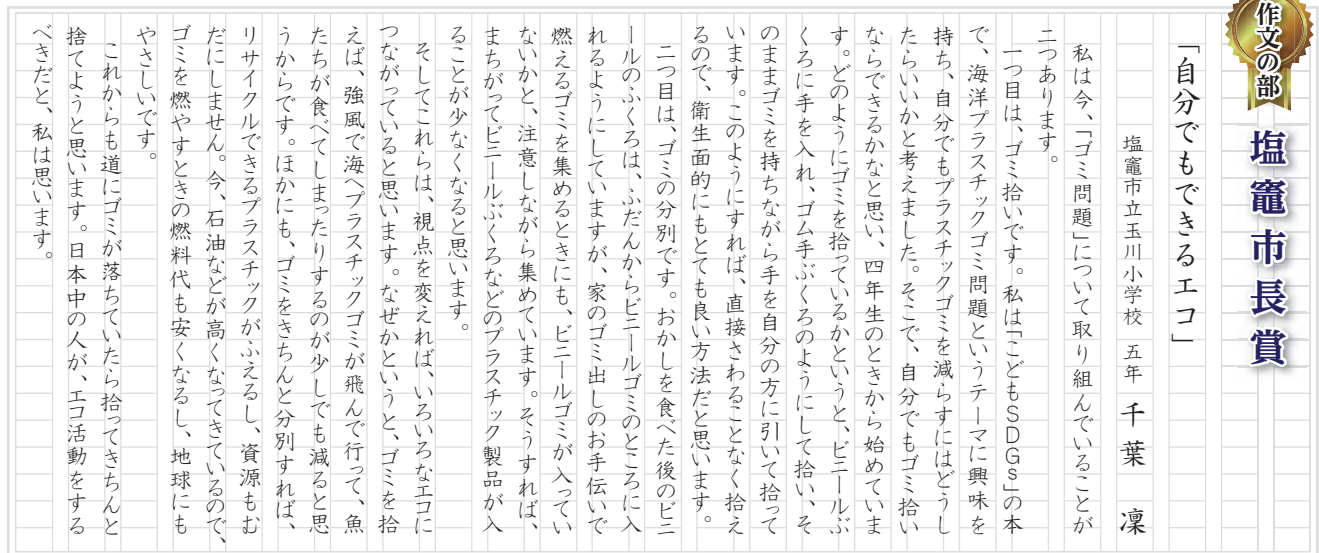 作文の部
塩竈市長賞
「自分でもできるエコ」
塩竈市立玉川小学校 五年 千葉 凜
私は今、「ゴミ問題」について取り組んでいることが
二つあります。
一つ目は、ゴミ拾いです。私は「こどもSDGs」の本
で、海洋プラスチックゴミ問題というテーマに興味を
持ち、自分でもプラスチックゴミを減らすにはどうし
たらいいかと考えました。そこで、自分でもゴミ拾い
ならできるかなと思い、四年生のときから始めていま
す。どのようにゴミを拾っているかというと、ビニールぶ
くろに手を入れ、ゴム手ぶくろのようにして拾い、そ
のままゴミを持ちながら手を自分の方に引いて拾って
います。このようにすれば、直接さわることなく拾え
るので、衛生面的にもとても良い方法だと思います。
二つ目は、ゴミの分別です。おかしを食べた後のビニ
ールのふくろは、ふだんからビニールゴミのところに入
れるようにしていますが、家のゴミ出しのお手伝いで
燃えるゴミを集めるときにも、ビニールゴミが入ってい
ないかと、注意しながら集めています。そうすれば、
まちがってビニールぶくろなどのプラスチック製品が入
ることが少なくなると思います。
そしてこれらは、視点を変えれば、いろいろなエコに
つながっていると思います。なぜかというと、ゴミを拾
えば、強風で海へプラスチックゴミが飛んで行って、魚
たちが食べてしまったりするのが少しでも減ると思
うからです。ほかにも、ゴミをきちんと分別すれば、
リサイクルできるプラスチックがふえるし、資源もむ
だにしません。今、石油などが高くなってきているので、
ゴミを燃やすときの燃料代も安くなるし、地球にも
やさしいです。
これからも道にゴミが落ちていたら拾ってきちんと
捨てようと思います。日本中の人が、エコ活動をする
べきだと、私は思います。